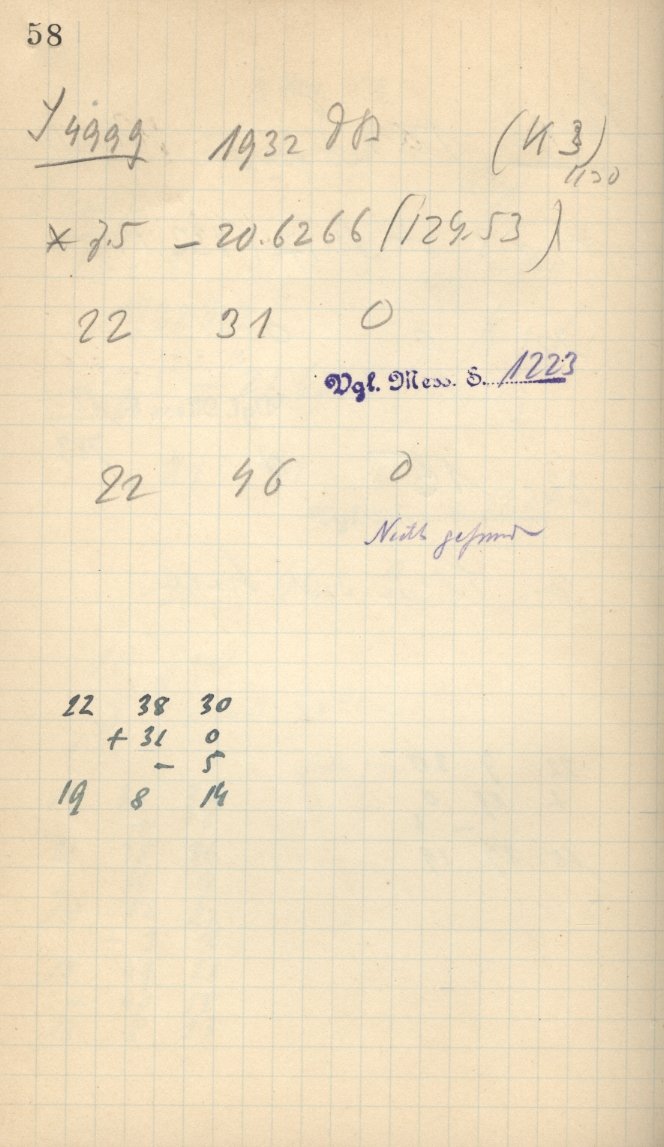 58
J 4999 1932 (K 3)
1120
× 7.5 – 20.6266 (129.53)
22 31 0
Vgl. Mess. S. 1223
22 46 0
Nicht gefund
22 38 30
+ 31 0
– 5
19 8 14